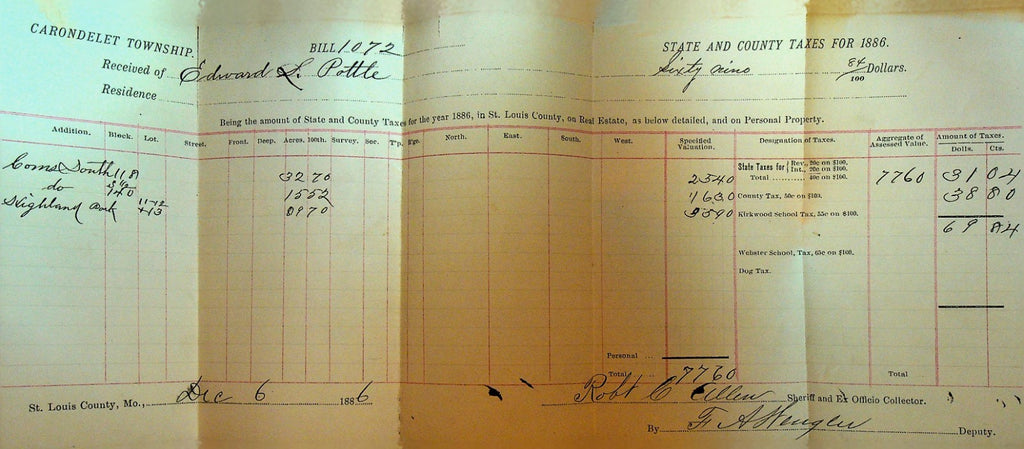 CARONDELET TOWNSHIP. BILL 1072 STATE AND COUNTY TAXES FOR 1886.
Received of Edward S. Pottle Sixty nine 84/100 Dollars.
Residence
Being the amount of State and County Taxes for the year 1886, in St. Louis County, on Real Estate, as below detailed, and on Personal Property.
Addition. Block. Lot. Street. Front. Deep. Acres. 100th. Survey. Sec. T'p. R'ge. North. East. South. West. Specified Valuation. Designation of Taxes. Aggregate of Assessed Value. Amount of Taxes.
Dolls. Cts.
State Taxes for { Rev., 20c on $100. Int., 20c on $100.
South 118 3270 2540 Total 40c on $100. 7760 31 04
do 1552 1630 County Tax, 50c on $100. 38 80
Highland Park 11-12 +13 0970 3590 Kirkwood School Tax, 55c on $100.
69 84
Webster School, Tax, 65c on $100.
Dog Tax.
Personal
Total 7760 Total
St. Louis County, Mo., Dec 6 1886 Robt C Allen Sheriff and Ex Officio Collector.
By F. A. Deputy.